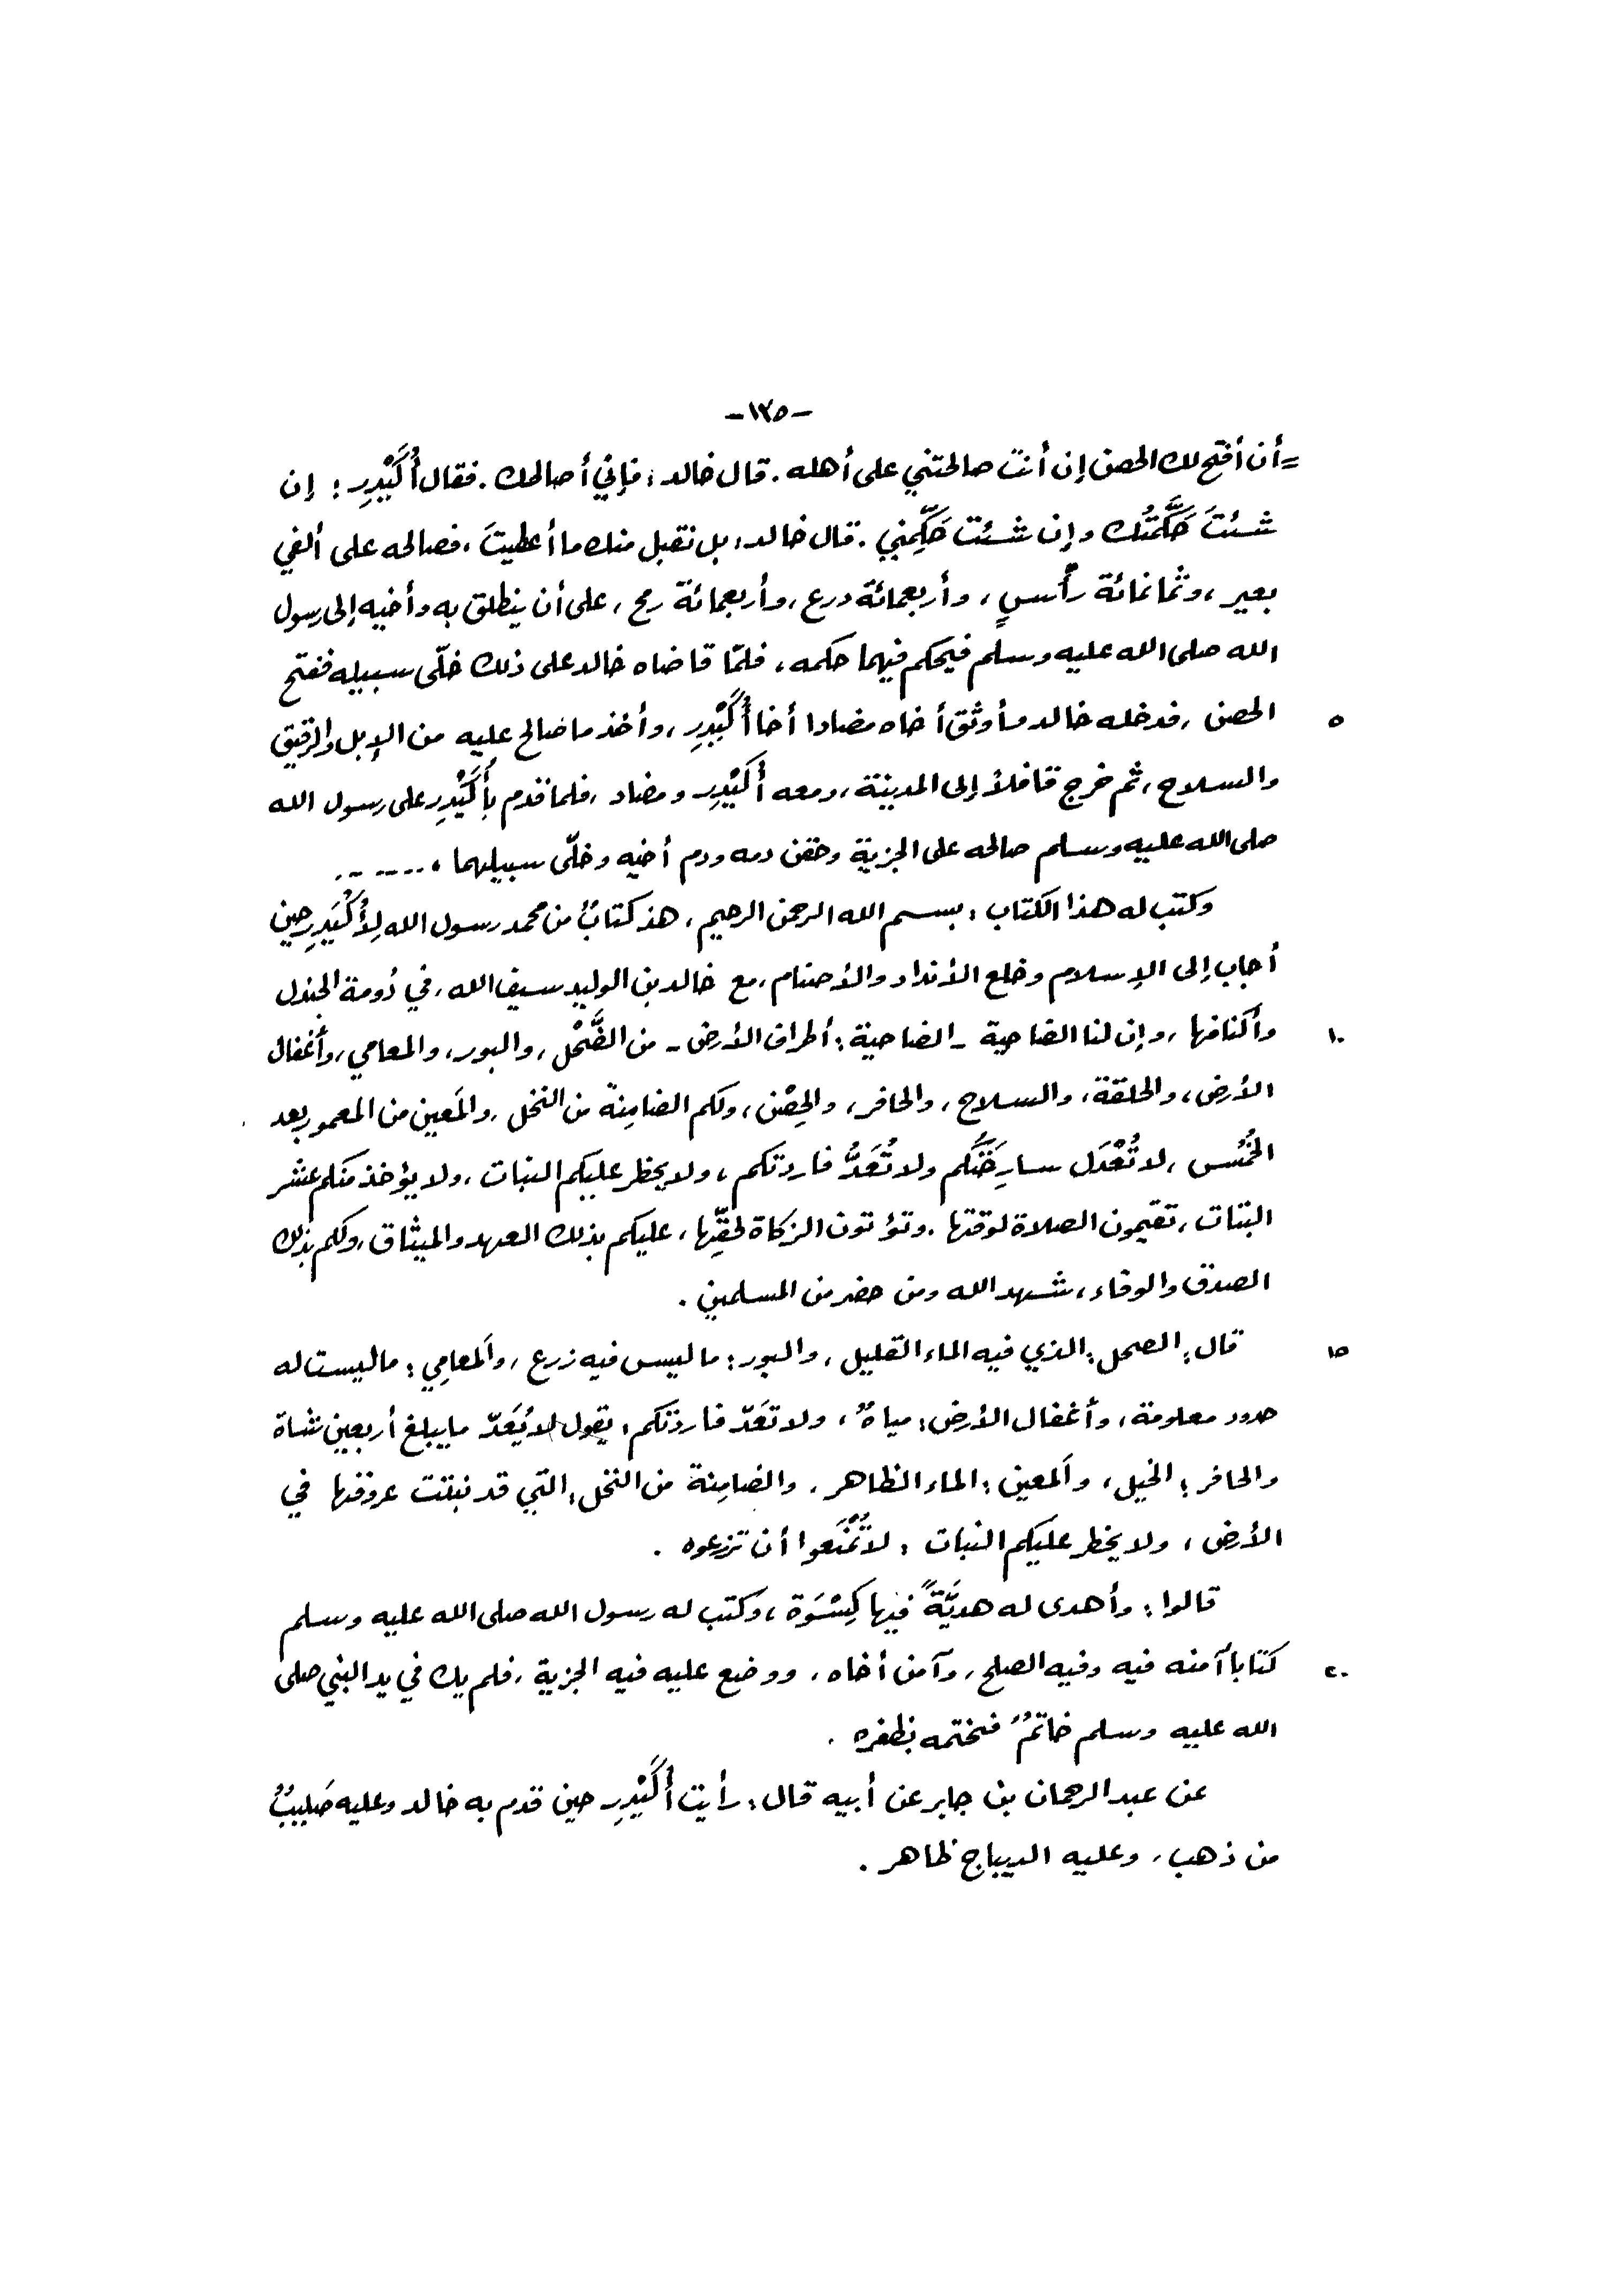 -١٣٥-
= أن أفتح لك الحصن إن أنت صالحتني على أهله. قال خالد: فإنّي أصالحك. فقال أُكَيْدِر: إن
شئتَ حَكَّمْتُك وإن شئت حَكِّمني. قال خالد: بل نقبل منك ما أعطيتَ، فصالحه على ألفي
بعير، وثمانمائة رأسٍ، وأربعمائة درع، وأربعمائة رمح، على أن ينطلق به وأخيه إلى رسول
الله صلى الله عليه وسلم فيحكم فيهما حكمه، فلمّا قاضاه خالد على ذلك خلّى سبيله ففتح
٥ الحصن، فدخله خالد وأوثق أخاه مضادا أخا أُكَيْدِر، وأخذ ما صالح عليه من الإبل والرقيق
والسلاح، ثم خرج قافلاً إلى المدينة، ومعه أُكَيْدِر ومضاد، فلما قدم بأُكَيْدِر على رسول الله
صلى الله عليه وسلم صالحه على الجزية وحقن دمه ودم أخيه وخلّى سبيلهما ،.......
وكتب له هذا الكتاب: بسم الله الرحمن الرحيم، هذ كتابٌ من محمد رسول الله لِأُكَيْدِر حين
أجاب إلى الإسلام وخلع الأنداد والأصنام، مع خالد بن الوليد سيف الله، في دُومة الجندل
١٠ وأكنافها، وإن لنا الضاحية - الضاحية: أطراف الأرض - من الضَّحْل، والبور، والمعامي، وأغفال
الأرض، والحلقة، والسلاح، والحافر، والحِصْن، ولكم الضامِنة من النخل، والمَعين من المعمور بعد
الخُمُس، لا تُعْدَل سارِحَتُكم ولا تُعَدُّ فاردتكم، ولا يحظر عليكم النبات، ولا يؤخذ منكم عشر
البتات، تقيمون الصلاة لوقتها. وتؤتون الزكاة لحقّها، عليكم بذلك العهد والميثاق، ولكم بذلك
الصدق والوفاء، شهد الله ومن حضر من المسلمين.
١٥ قال: الضحل: الذي فيه الماء القليل، والبور: ما ليس فيه زرع، والمعامِي: ما ليست له
حدود معلومة، وأغفال الأرض: مياهٌ، ولا تَعَدّ فاردتكم: يقول لا يُعَدّ ما يبلغ أربعين شاة
والحافر: الخيل، والمَعين: الماء الظاهر، والضامِنة من النخل: التي قد نبتت عروقها في
الأرض، ولا يحظر عليكم النبات: لا تُمْنَعوا أن تزرعوه.
قالوا: وأهدى له هديَّةً فيها كِسْوَة، وكتب له رسول الله صلى الله عليه وسلم
٢٠ كتاباً آمنه فيه وفيه الصلح، وآمن أخاه، ووضع عليه فيه الجزية، فلم يك في يد النبي صلى
الله عليه وسلم خاتمٌ فختمه بظفره.
عن عبد الرحمان بن جابر عن أبيه قال: رأيت أُكَيْدِر حين قدم به خالد وعليه صَليبٌ
من ذهب، وعليه الديباج ظاهر.